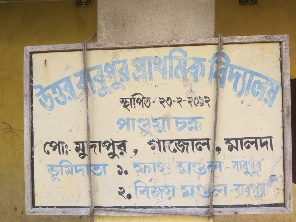 উত্তর বাবুপুর প্রাথমিক বিদ্যালয়
স্থাপিত- ২৩-২-২০১২
পান্ডুয়া চক্র
পোঃ মুদাপুর, গাজোল, মালদা
ভূমিদাতা ১. মণ্ডল-বাবুপুর
২. বিজয় মণ্ডল-বাবুপুর